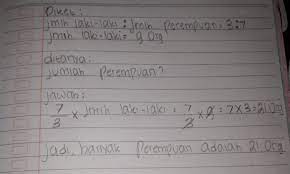 Diket:
jmlh laki-laki : jmlh Perempuan = 3:7
jmlh laki-laki = 9 Org
ditanya:
jumlah Perempuan?
jawab:
7/3 x jmlh laki-laki = 7/3 x 9 = 7x3 = 21 Org
jadi, banyak Perempuan adalah 21 Org